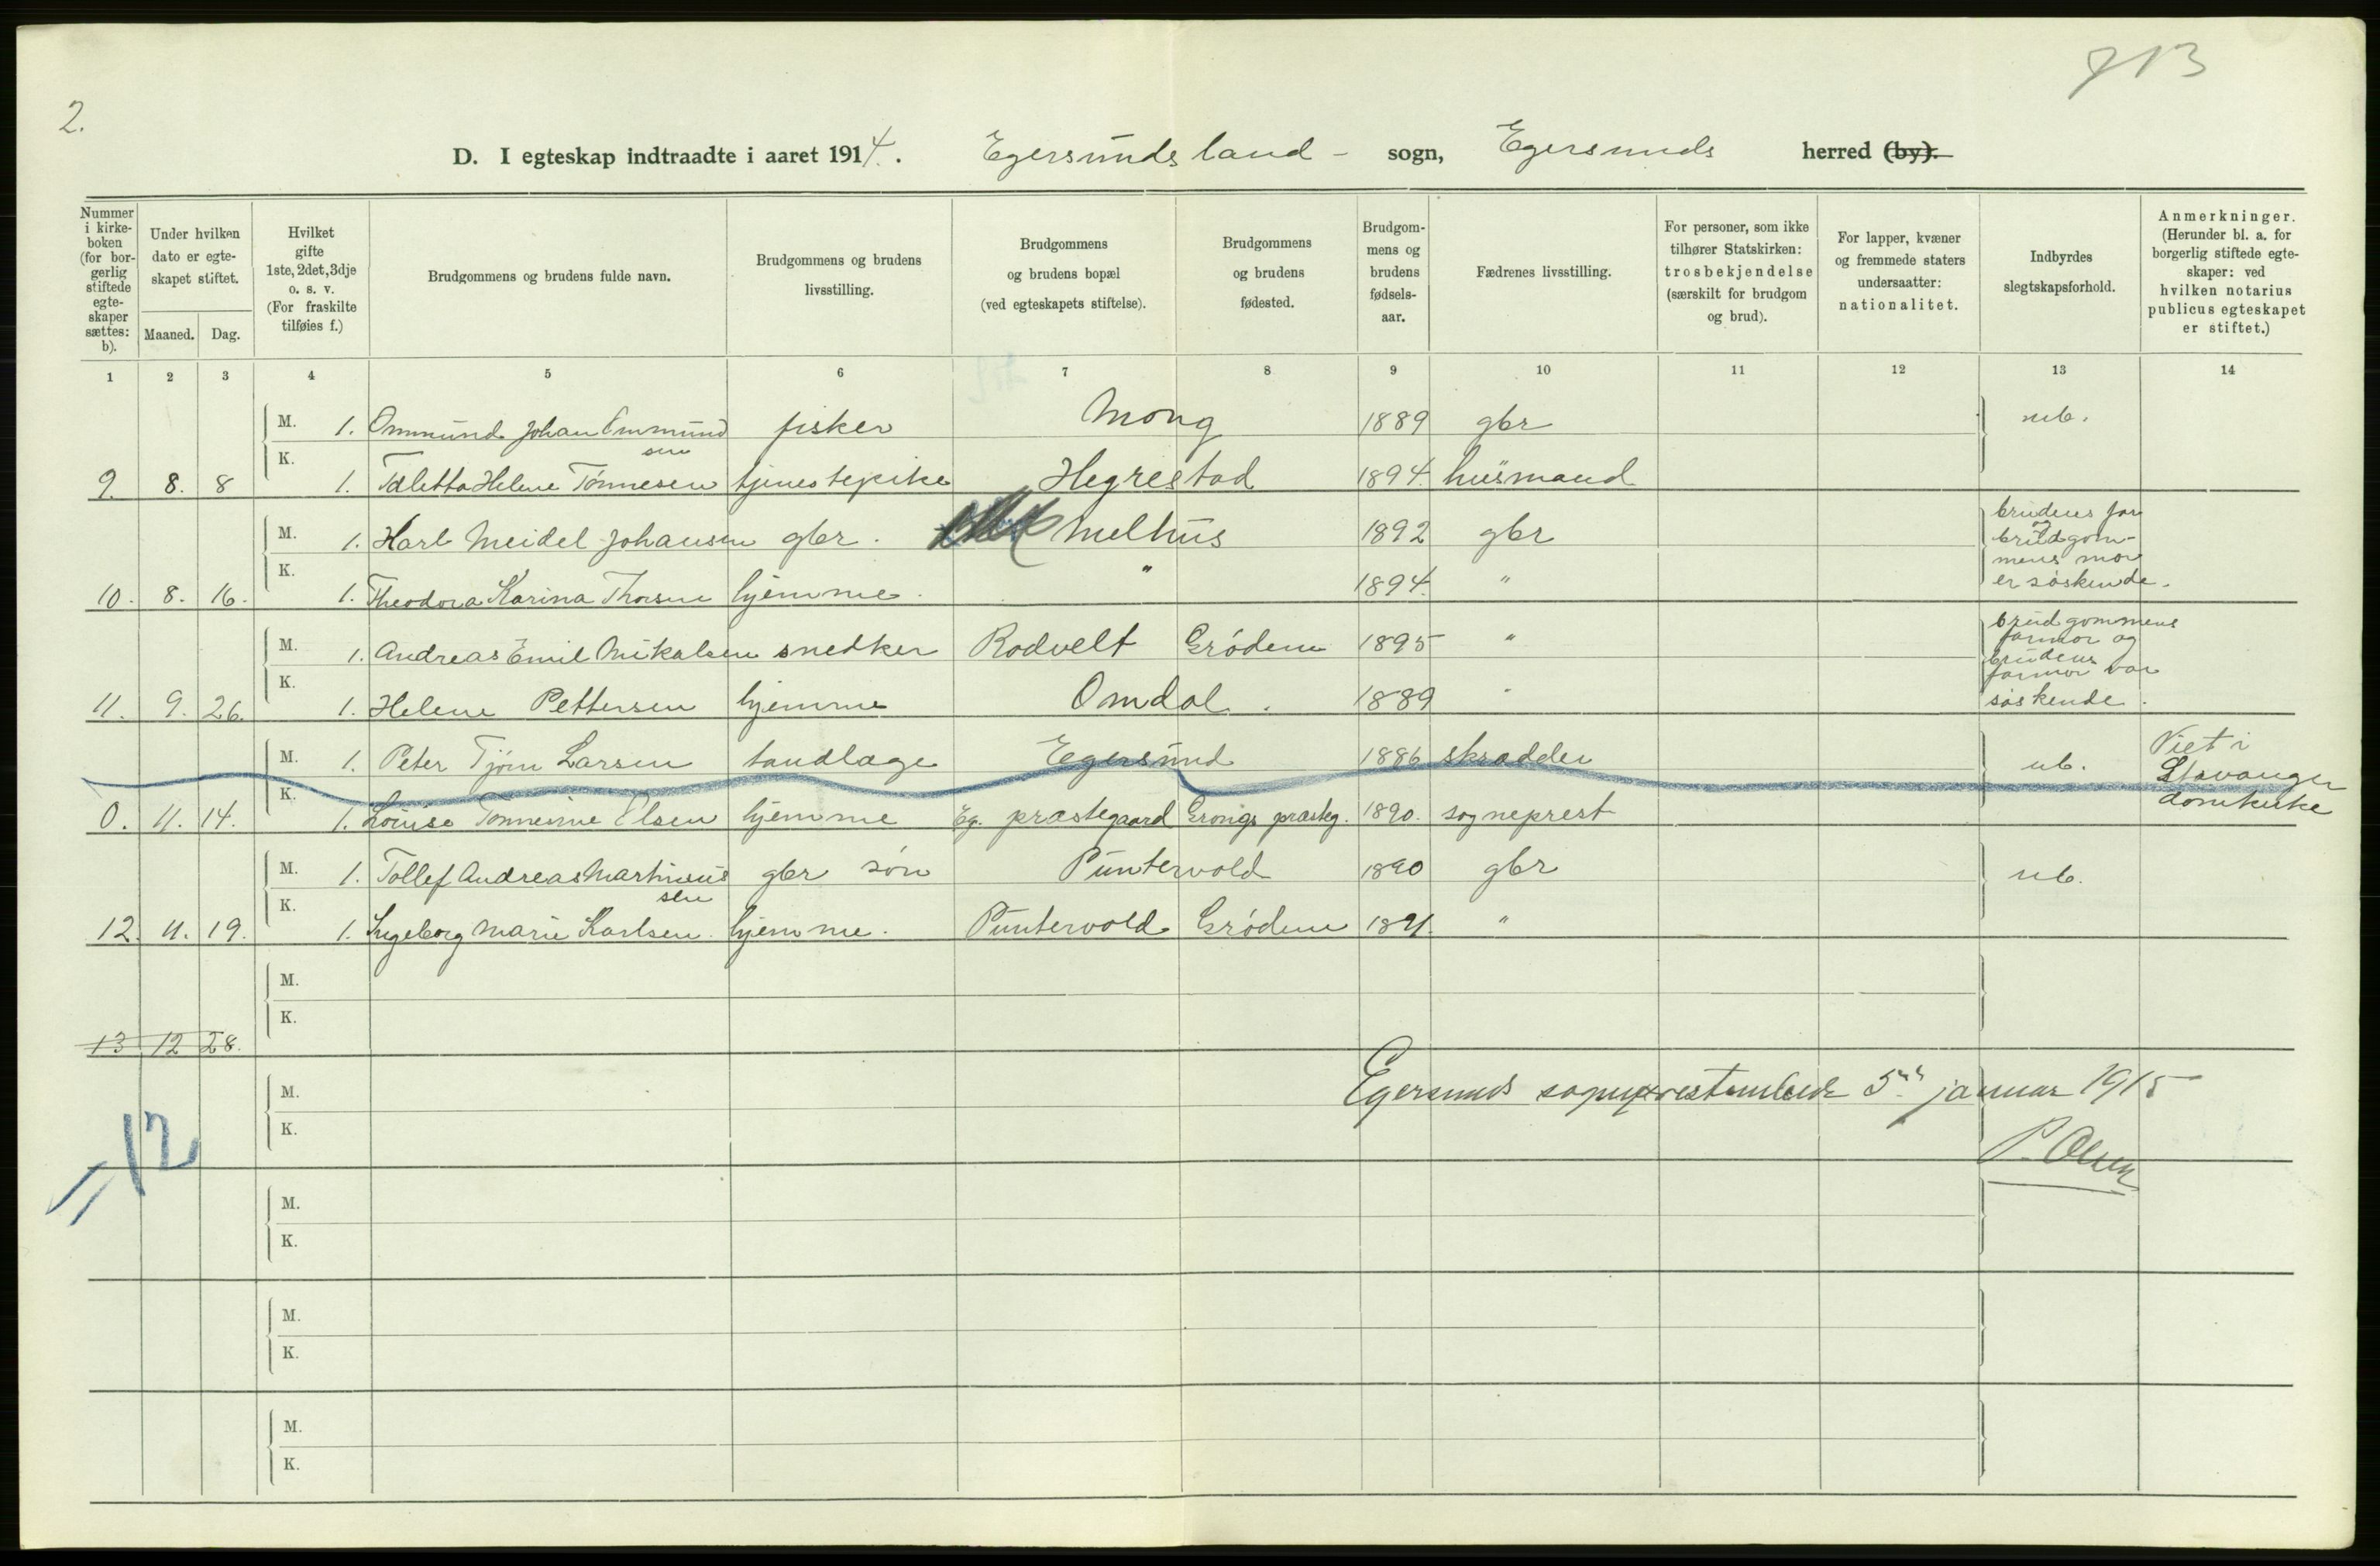 2.
713
D. I egteskap indtraadte i aaret 1914. Egersunds land - sogn, Egersunds herred (by).
Nummer i kirkeboken (for borgerlig stiftede egteskaper sættes: b).
Under hvilken dato er egteskapet stiftet.
Maaned. Dag.
Hvilket gifte 1ste, 2det, 3dje o. s. v. (For fraskilte tilføies f.)
Brudgommens og brudens fulde navn.
Brudgommens og brudens livsstilling.
Brudgommens og brudens bopæl (ved egteskapets stiftelse).
Brudgommens og brudens fødested.
Brudgommens og brudens fødselsaar.
Fædrenes livsstilling.
For personer, som ikke tilhører Statskirken: trosbekjendelse (særskilt for brudgom og brud).
For lapper, kvæner og fremmede staters undersaatter: nationalitet.
Indbyrdes slegtskapsforhold.
Anmerkninger. (Herunder bl. a. for borgerlig stiftede egteskaper: ved hvilken notarius publicus egteskapet er stiftet.)
1 2 3 4 5 6 7 8 9 10 11 12 13 14
M. 1. Ommund Johan Ommundsen fisker Mong 1889 gbr ub.
K.
9. 8. 8 1. Taletta Helene Tønnesen tjenestepike Hegrestad 1894. husmand
M. 1. Karl Meidel Johansen gbr. Melhus 1892 gbr brudens far og brudgommens mor er søskende.
K.
10. 8. 16. 1. Theodora Karina Thorsen hjemme. " 1894. "
M. 1. Andreas Emil Mikalsen snedker Rodvelt Grøden 1895 " brudgommens farmor og brudens farmor var søskende.
K.
11. 9. 26. 1. Helene Pettersen hjemme Omdal. 1889 "
M. 1. Peter Tjørn Larsen tandlæge Egersund 1886 skrædder ub. Viet i Stavanger domkirke
K.
0. 11. 14. 1. Louise Tonnesine Olsen hjemme Eg. præstegaard Grongs præsteg. 1890. sogneprest
M. 1. Tollef Andreas Martinussen gbr søn Puntervold 1890 gbr ub.
K.
12. 11. 19. 1. Ingeborg Marie Karlsen. hjemme. Puntervold Grødem 1891. "
M.
K.
13 12 28.
Egersunds sogneprestembede 5te januar 1915
M.
K.
P. Olsen
= 12
M.
K.
M.
K.
M.
K.